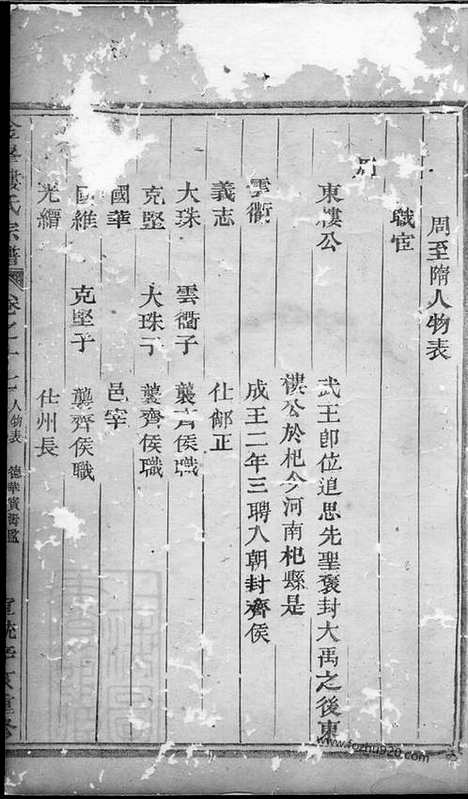 周至隋人物表
職官
周
東樓公 武王卽位追思先聖褒封大禹之後東
樓公於杞今河南杞縣是
雲衢 成王二年三聘入朝封齊侯
義志 仕鄉正
大珠 雲衢子 襲齊侯職
克堅 大珠子 襲齊侯職
國華 邑宰
國維 克堅子 襲齊侯職
光縉 仕州長
樓氏宗譜 卷之十二 人物表
www.fozhu920.com